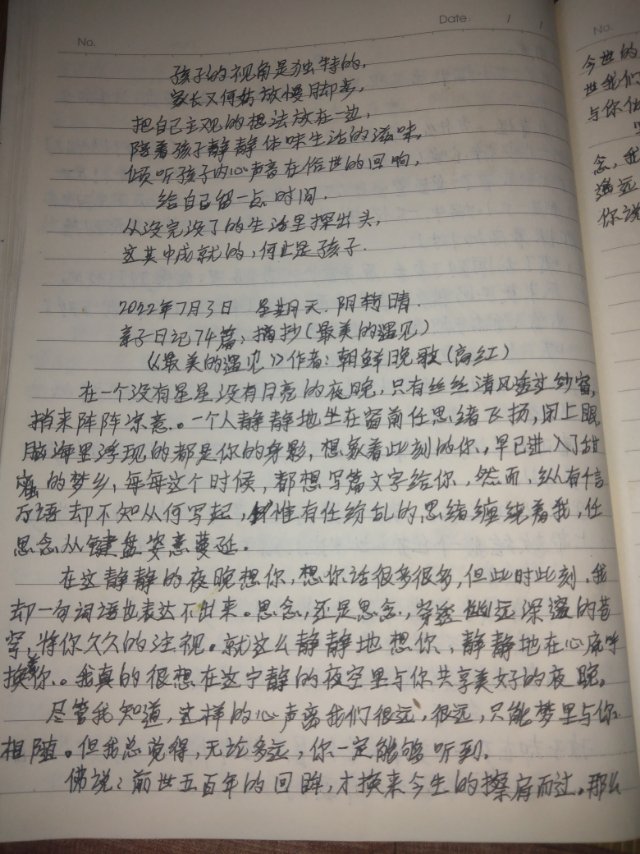 No.
Date / /
孩子的视角是独特的，
家长又何妨放慢脚步，
把自己主观的想法放在一边，
陪着孩子静静体味生活的滋味。
倾听孩子内心声音在俗世的回响，
给自己留一点时间，
从没完没了的生活里探出头，
这其中成就的，何止是孩子.
2022年7月3日 星期天 阴转晴
亲子日记74篇：摘抄（最美的遇见）
《最美的遇见》作者：朝鲜晚歌（高红）
在一个没有星星没有月亮的夜晚，只有丝丝清风透过纱窗，
捎来阵阵凉意。一个人静静地坐在窗前任思绪飞扬，闭上眼
脑海里浮现的都是你的身影，想象着此刻的你，早已进入了甜
蜜的梦乡，每每这个时候，都想写篇文字给你，然而，纵有千言
万语却不知从何写起，惟有任纷乱的思绪缠绕着我，任
思念从键盘姿意蔓延。
在这静静的夜晚想你，想你话很多很多，但此时此刻，我
却一句词语也表达不出来。思念，还是思念，穿透幽远深邃的苍
穹，将你久久的注视。就这么静静地想你，静静地在心底呼
换着你。我真的很想在这宁静的夜空里与你共享美好的夜晚。
尽管我知道，这样的心声离我们很远，很远，只能梦里与你
相随。但我总觉得，无论多远，你一定能够听到.
佛说：前世五百年的回眸，才换来今生的擦肩而过。那么
No.
今世的
世我们
与你
念，我
遥远
你说